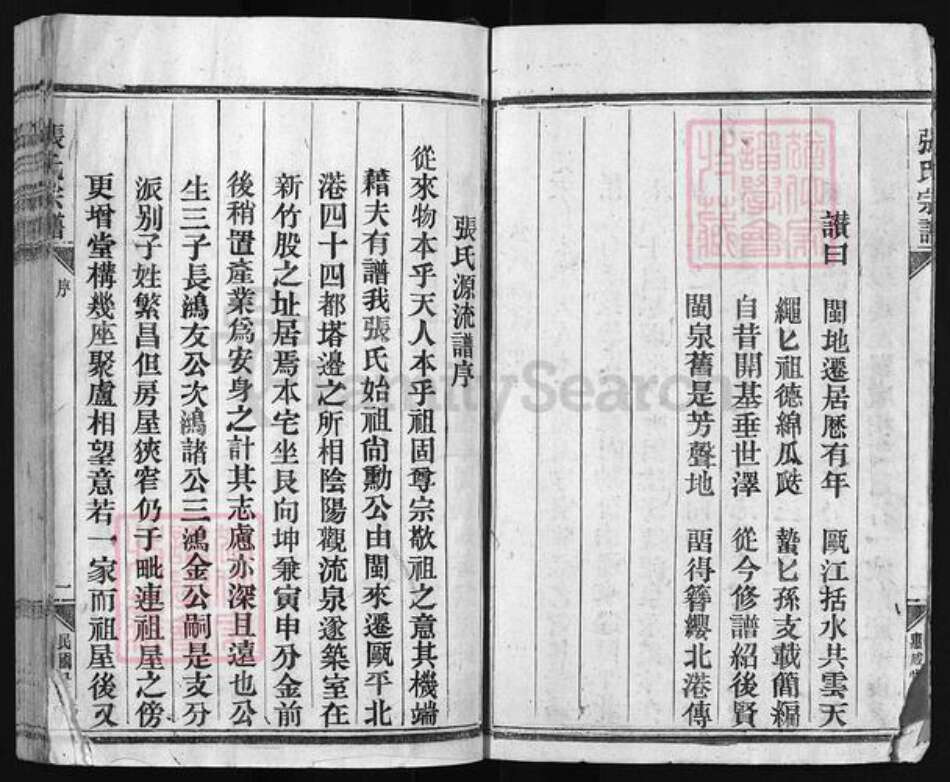 張氏宗譜
讃曰
閩地遷居歷有年 甌江括水共雲天
繩匕祖德綿瓜瓞 蟄匕孫支載簡編
自昔開基垂世澤 從今修譜紹後賢
閩泉舊是芳聲地 畱得簪纓北港傳
張氏源流譜序
從來物本乎天人本乎祖固尊宗敬祖之意其機端
藉夫有譜我張氏始祖尙勳公由閩來遷甌平北
港四十四都塔邊之所相陰陽觀流泉遂築室在
新竹股之址居焉本宅坐艮向坤兼寅申分金前
後稍置產業爲安身之計其志慮亦深且遠也公
生三子長鴻友公次鴻諸公三鴻金公嗣是支分
派別子姓繁昌但房屋狹窄仍于毗連祖屋之傍
更增堂構幾座聚廬相望意若一家而祖屋後又
張氏宗譜
序
一
民國
FamilySearch